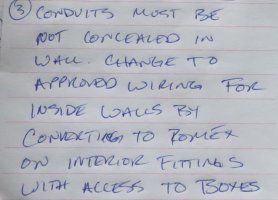 ③ CONDUITS MUST BE
NOT CONCEALED IN
WALL. CHANGE TO
APPROVED WIRING FOR
INSIDE WALLS BY
CONVERTING TO ROMEX
ON INTERIOR FITTINGS
WITH ACCESS TO BOXES